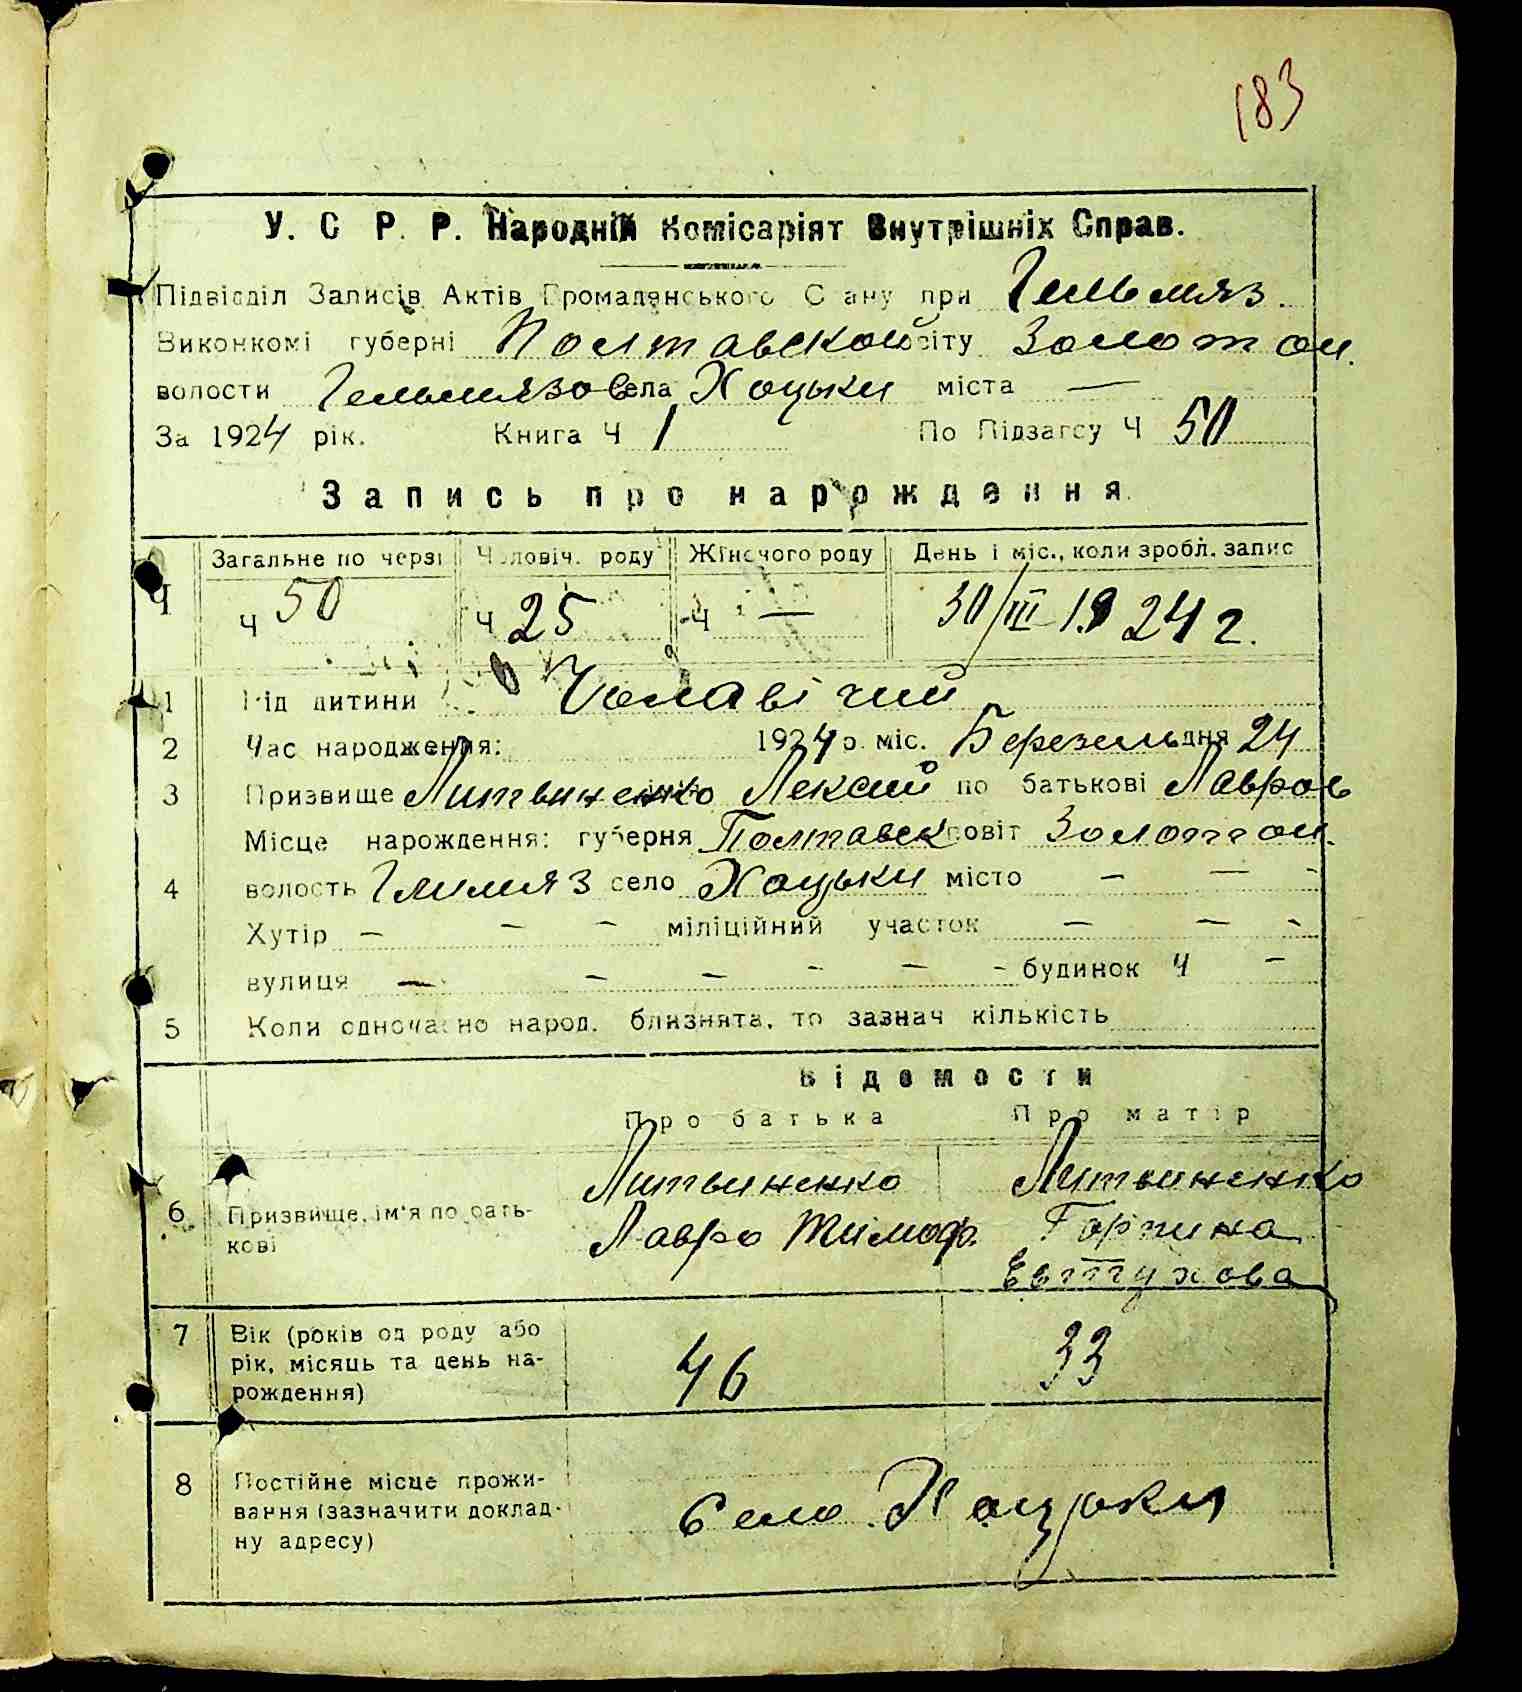 183
У. С. Р. Р. Народній Комісаріят Внутрішніх Справ.
Підвідділ Записів Актів Громадянського Стану при Гельмяз.
Виконкомі губерні Полтавской повіту Золотон.
волости Гельмязов села Хоцьки міста —
За 1924 рік. Книга Ч 1 По Підзагсу Ч 50
Запись про народження
Ч Загальне по черзі Чоловіч. роду Жіночого роду День і міс., коли зробл. запис
ч 50 ч 25 ч — 30/III 1924 г.
1 Рід дитини Чолавічий
2 Час народження: 1924 р. міс. Березень дня 24
3 Призвище Литвиненко Лексий по батькові Лавров
Місце нарождення: губерня Полтавск повіт Золотон.
4 волость Гмимяз село Хоцьки місто — — -
Хутір — — — міліційний участок — — -
вулиця — — — - — - будинок ч —
5 Коли одночасно народ. близнята, то зазнач кількість
Відомости
Про батька Про матір
6 Призвище, ім'я по бать-
кові
Литвиненко Литвиненко
Лавро Тимоф. Горпина
Евтухова
7 Вік (років од роду або
рік, місяць та день на-
рождення)
46 33
8 Постійне місце прожи-
вання (зазначити доклад-
ну адресу)
Село Хоцьки